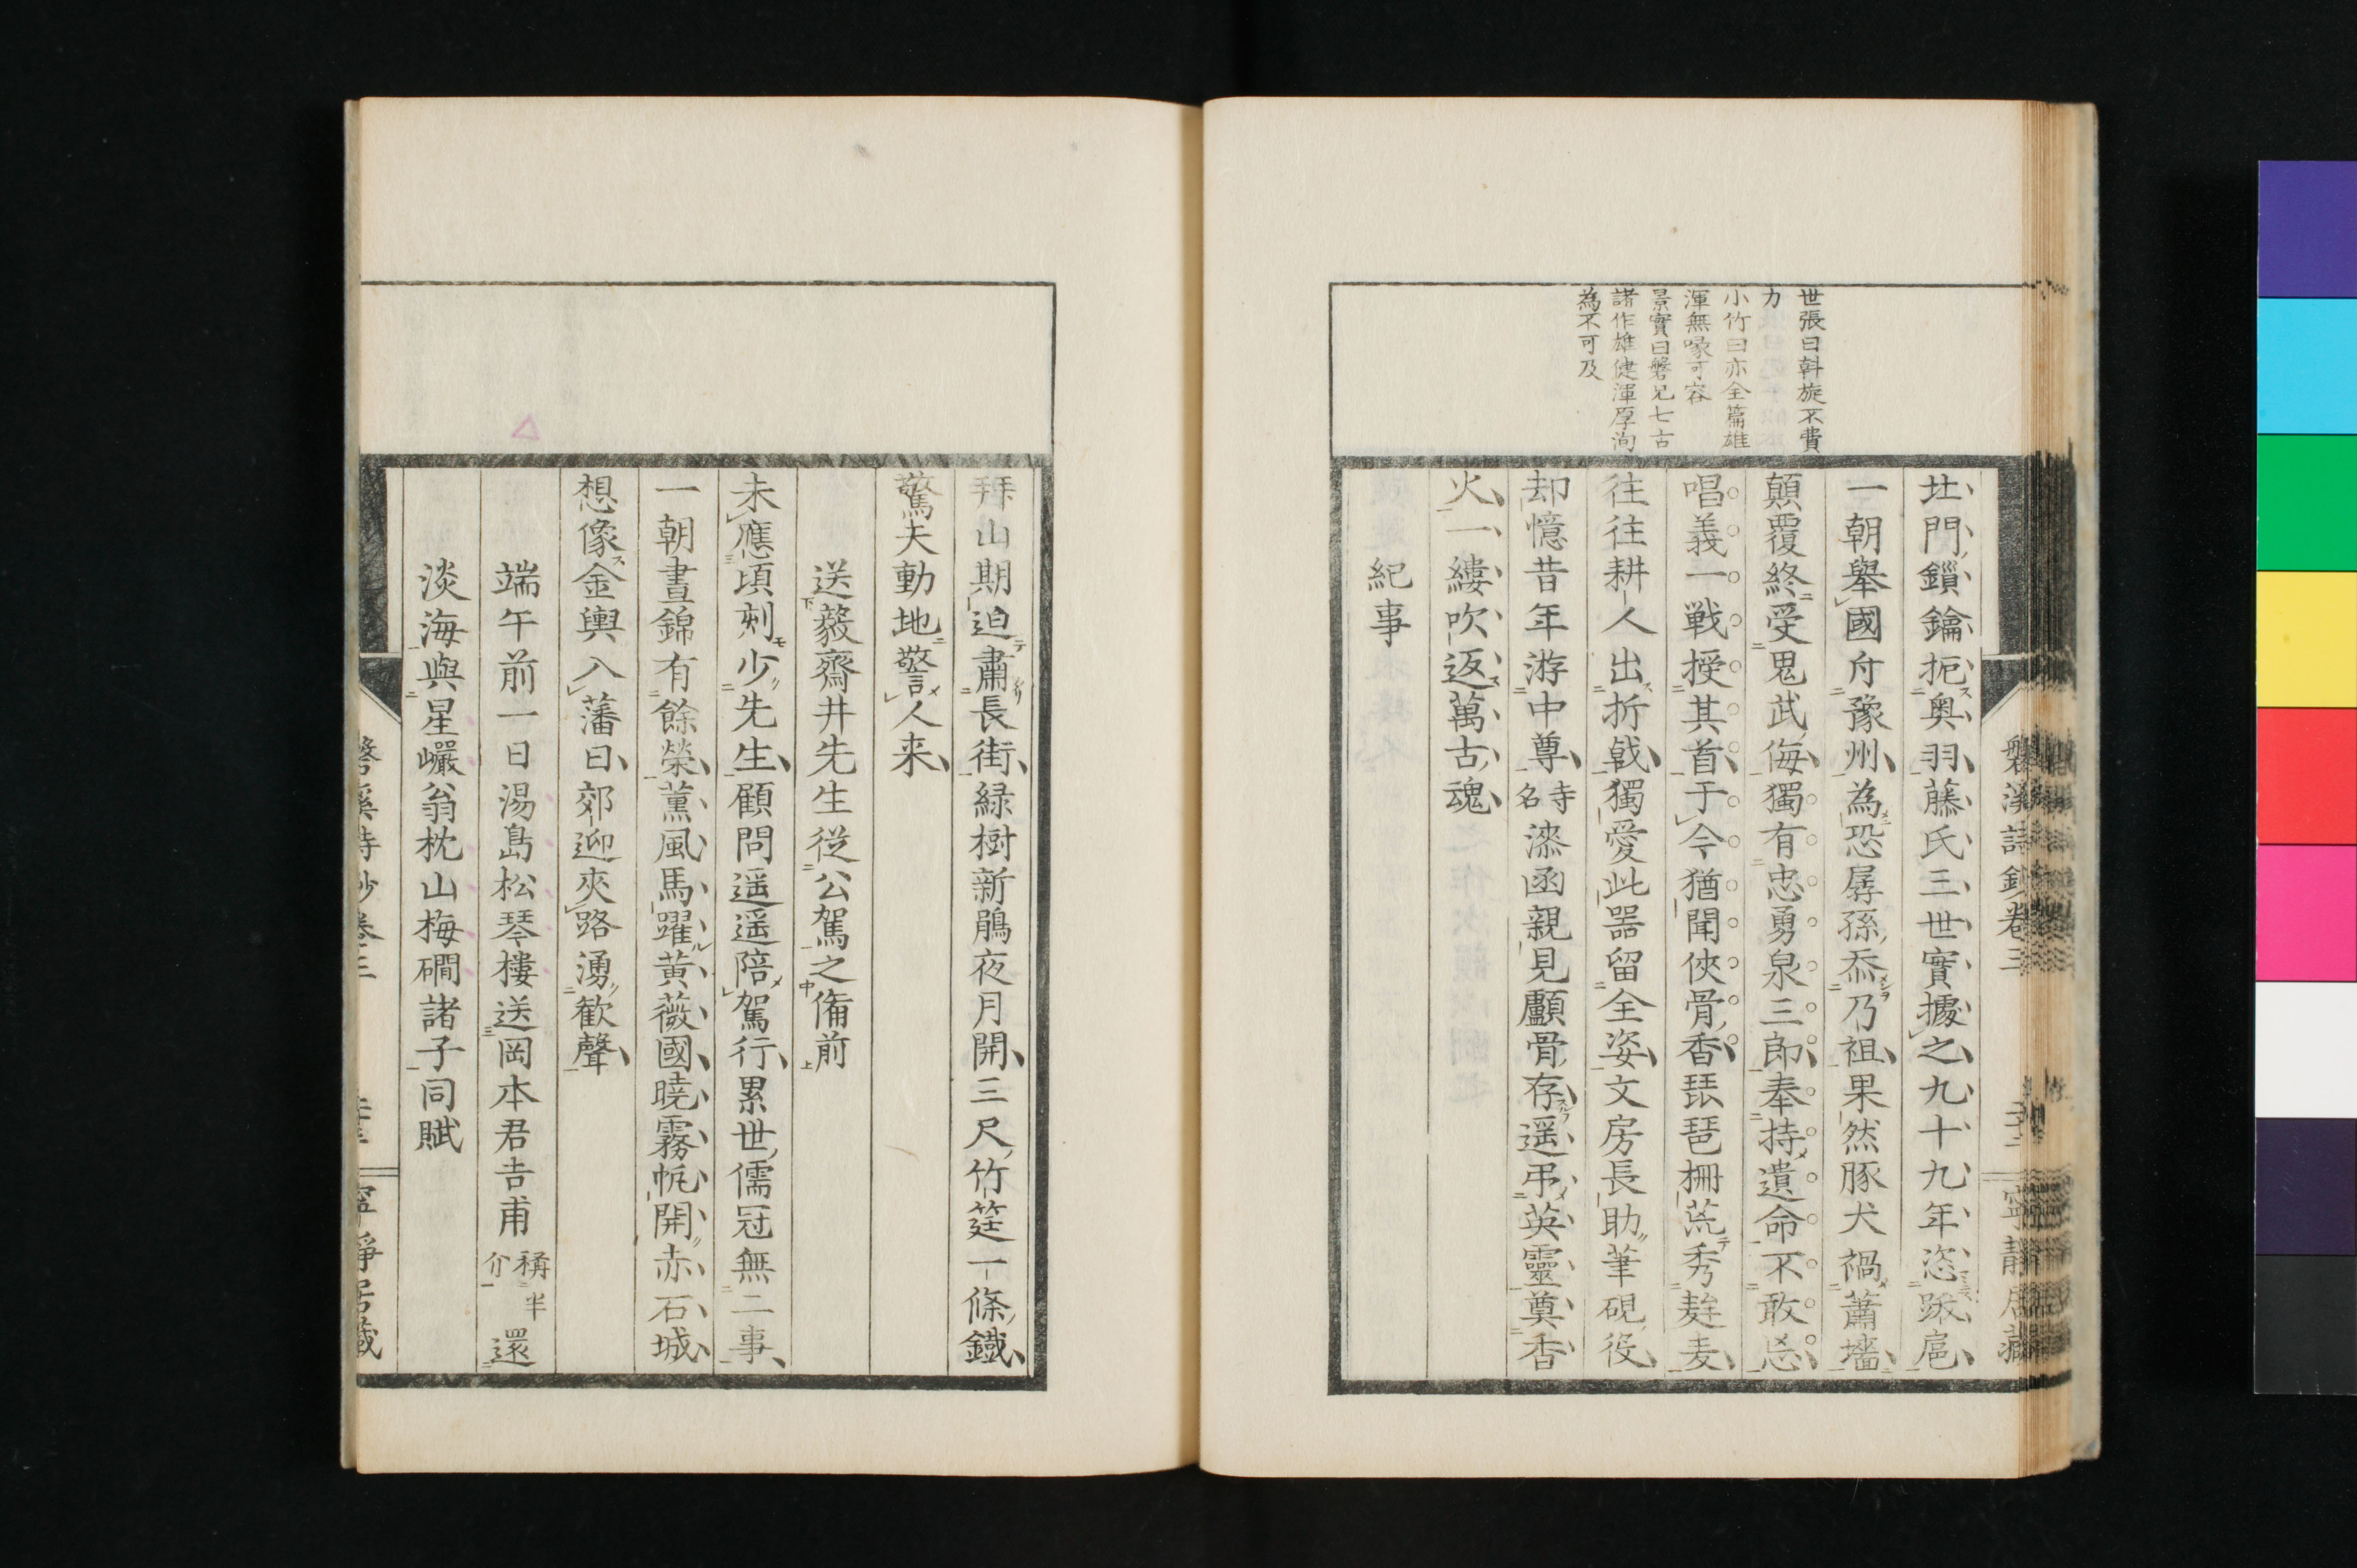 世張曰斡旋不費
力
小竹曰亦全篇雄
渾無喙可容
景實曰磐兄七古
諸作雄健渾厚洵
為不可及
北門鎻鑰扼奥羽藤氏三世實據之九十九年恣跋扈
一朝舉國付豫州為恐孱孫忝乃祖果然豚犬禍蕭墻
顛覆終受鬼武侮獨有忠勇泉三郎奉持遺命不敢忘
唱義一戦授其首于今猶聞俠骨香琵琶柵荒秀麰麦
往往耕人出折戟獨愛此噐留全姿文房長助筆硯役
却憶昔年游中尊寺名漆函親見顱骨存遥弔英靈奠香
火一縷吹返萬古魂
紀事
磐溪詩鈔卷三
寧靜居藏
拜山期迫肅長街緑樹新鵑夜月開三尺竹筳一條鐵
驚天動地警人来
送蓛齋井先生従公駕之備前
未應頃刻少先生顧問遥遥陪駕行累世儒冠無二事
一朝晝錦有餘榮薫風馬躍黄薇國曉霧帆開赤石城
想像金輿入藩日郊迎夾路湧歡聲
端午前一日湯島松琴樓送岡本君吉甫稱半介還
淡海與星巗翁枕山梅磵諸子同賦
磐溪詩鈔卷三
寧靜居藏